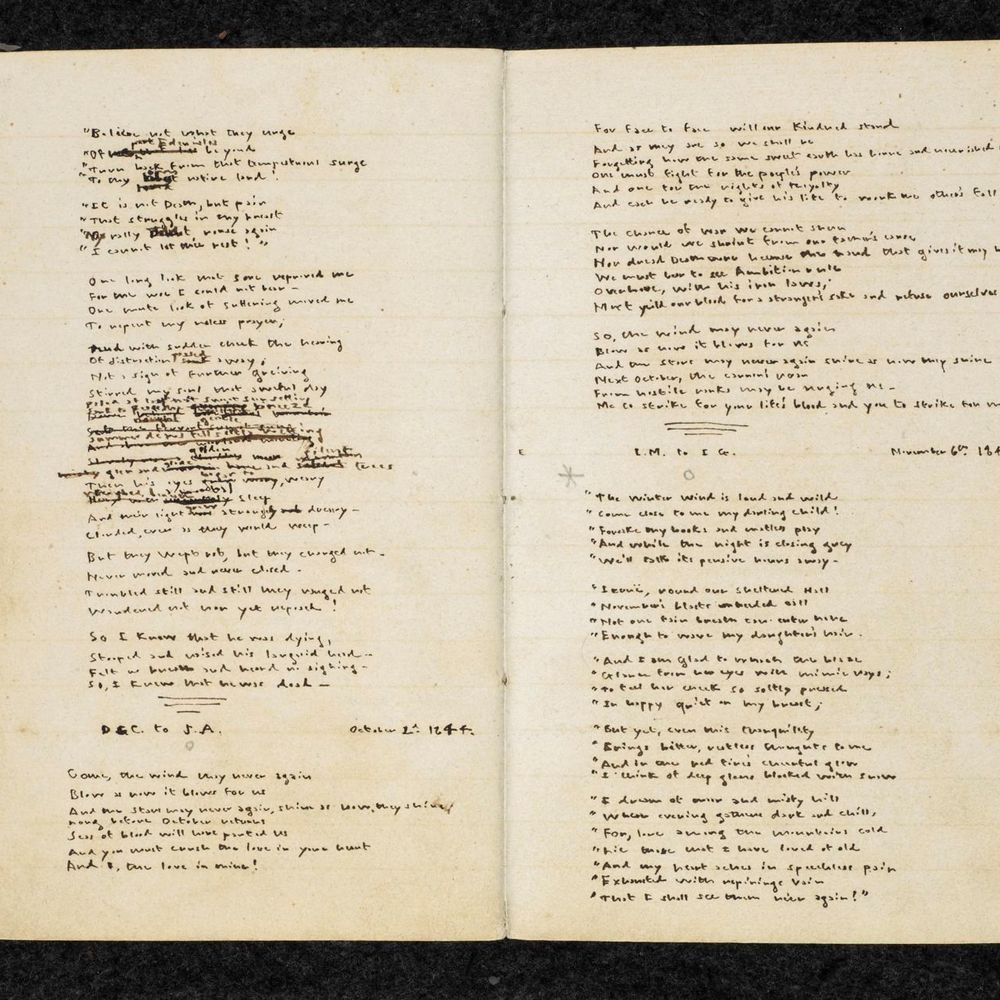 "Believe not what they urge
"Of past Eden isles beyond
"Turn back from that tempestuous surge
"To thy own native land!
"It is not Death, but pain
"That struggles in thy breast
"Nay rally rouse again
"I cannot let thee rest! "
One long look that sore reproved me
For the woe I could not bear —
One mute look of suffering moved me
To repent my useless prayer;
And with sudden check the heaving
Of distraction passed away;
Not a sign of further grieving
Stirred my soul that awful day
Paled at length the sweet sun setting
golden
glen and house and trees
Then his eyes began to weary,
Weighed beneath a mortal sleep
And their light grew strangely dreary —
Clouded, even as they would weep —
But they wept not, but they changed not —
Never moved and never closed —
Troubled still and still they ranged not
Wandered not nor yet reposed!
So I knew that he was dying,
Stooped and raised his languid head —
Felt no breath and heard no sighing —
So, I knew that he was dead —
D.G.C. to J.A. October 2d 1844.
Come, the wind may never again
Blow as now it blows for us
And the stars may never again, shine as now, they shine;
Long before October returns
Seas of blood will have parted us
And you must crush the love in your heart
And I, the love in mine!
For face to face will our Kindred stand
And as they are so we shall be
Forgetting how the same sweet earth has borne and nourished
One must fight for the people's power
And one for the rights of Royalty
And each be ready to give his life to work the other's fall
The chance of war we cannot shun
Nor would we shrink from our fathers' cause
Nor dread Death more because the hand that gives it may b
We must bear to see Ambition rule
Over Love, with his iron laws;
Must yield our blood for a stranger's sake and refuse ourselves
So, the wind may never again
Blow as now it blows for us
And the stars may never again shine as now they shine
Next October, the cannon's roar
From hostile ranks may be urging us —
Me to strike for your life's blood and you to strike for m
E.
I.M. to I.G. November 6th 184
"The winter wind is loud and wild
"Come close to me my darling child!
"Forsake thy books and mateless play
"And while the night is closing grey
"We'll talk its pensive hours away —
"Iernë, round our sheltered Hall
"November's blasts unheeded call
"Not one faint breath can enter here
"Enough to wave my daughter's hair.
"And I am glad to watch the blaze
"Glance from her eyes with mimic rays;
"To feel her cheek so softly pressed
"In happy quiet on my breast;
"But yet, even this tranquility
"Brings bitter, restless thoughts to me
"And in the red fire's cheerful glow
"I think of deep glens blocked with snow
"I dream of moor and misty hill
"Where evening gathers dark and chill,
"For, lone among the mountains cold
"Lie those that I have loved of old
"And my heart aches in speechless pain
"Exhausted with repinings vain
"That I shall see them ne'er again!"